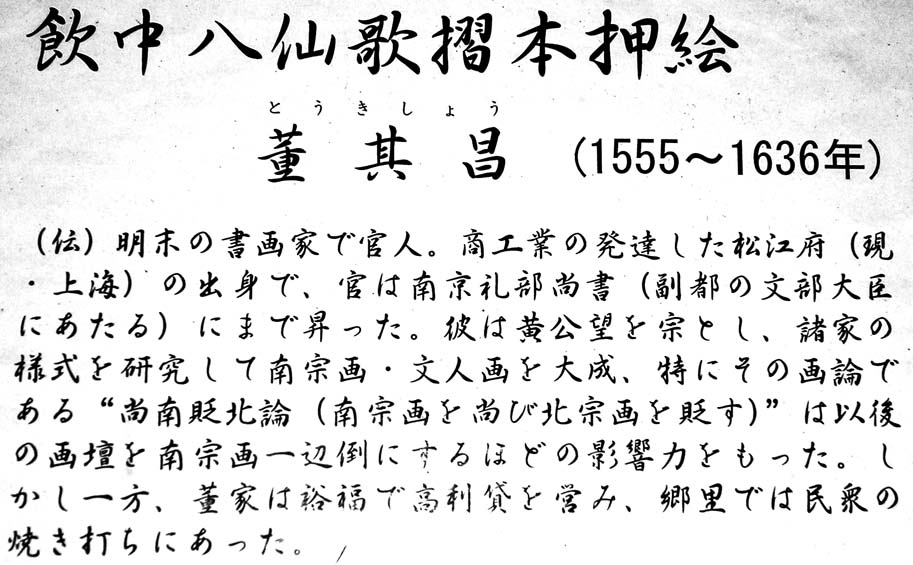 飲中八仙歌摺本押絵
とうきしょう
董其昌 (1555～1636年)
（伝）明末の書画家で官人。商工業の発達した松江府（現
・上海）の出身で、官は南京礼部尚書（副都の文部大臣
にあたる）にまで昇った。彼は黄公望を宗とし、諸家の
様式を研究して南宗画・文人画を大成、特にその画論で
ある“尚南貶北論（南宗画を尚び北宗画を貶す）”は以後
の画壇を南宗画一辺倒にするほどの影響力をもった。し
かし一方、董家は裕福で高利貸を営み、郷里では民衆の
焼き打ちにあった。